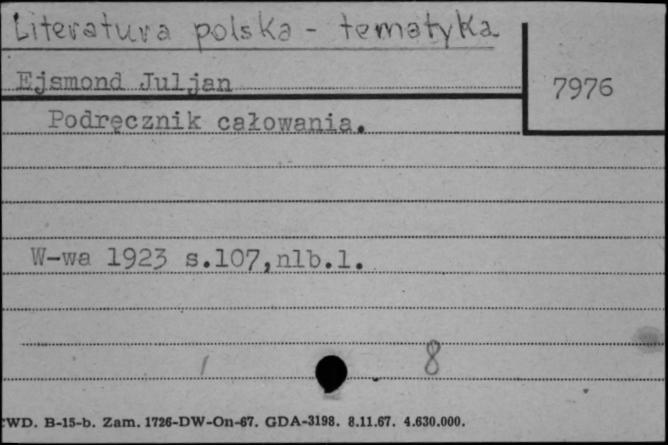 Literatura polska - tematyka
Ejsmond Juljan
7976
Podręcznik całowania.
W-wa 1923 s.107,nlb.1.
8
CWD. B-15-b. Zam. 1726-DW-On-67. GDA-3198. 8.11.67. 4.630.000.